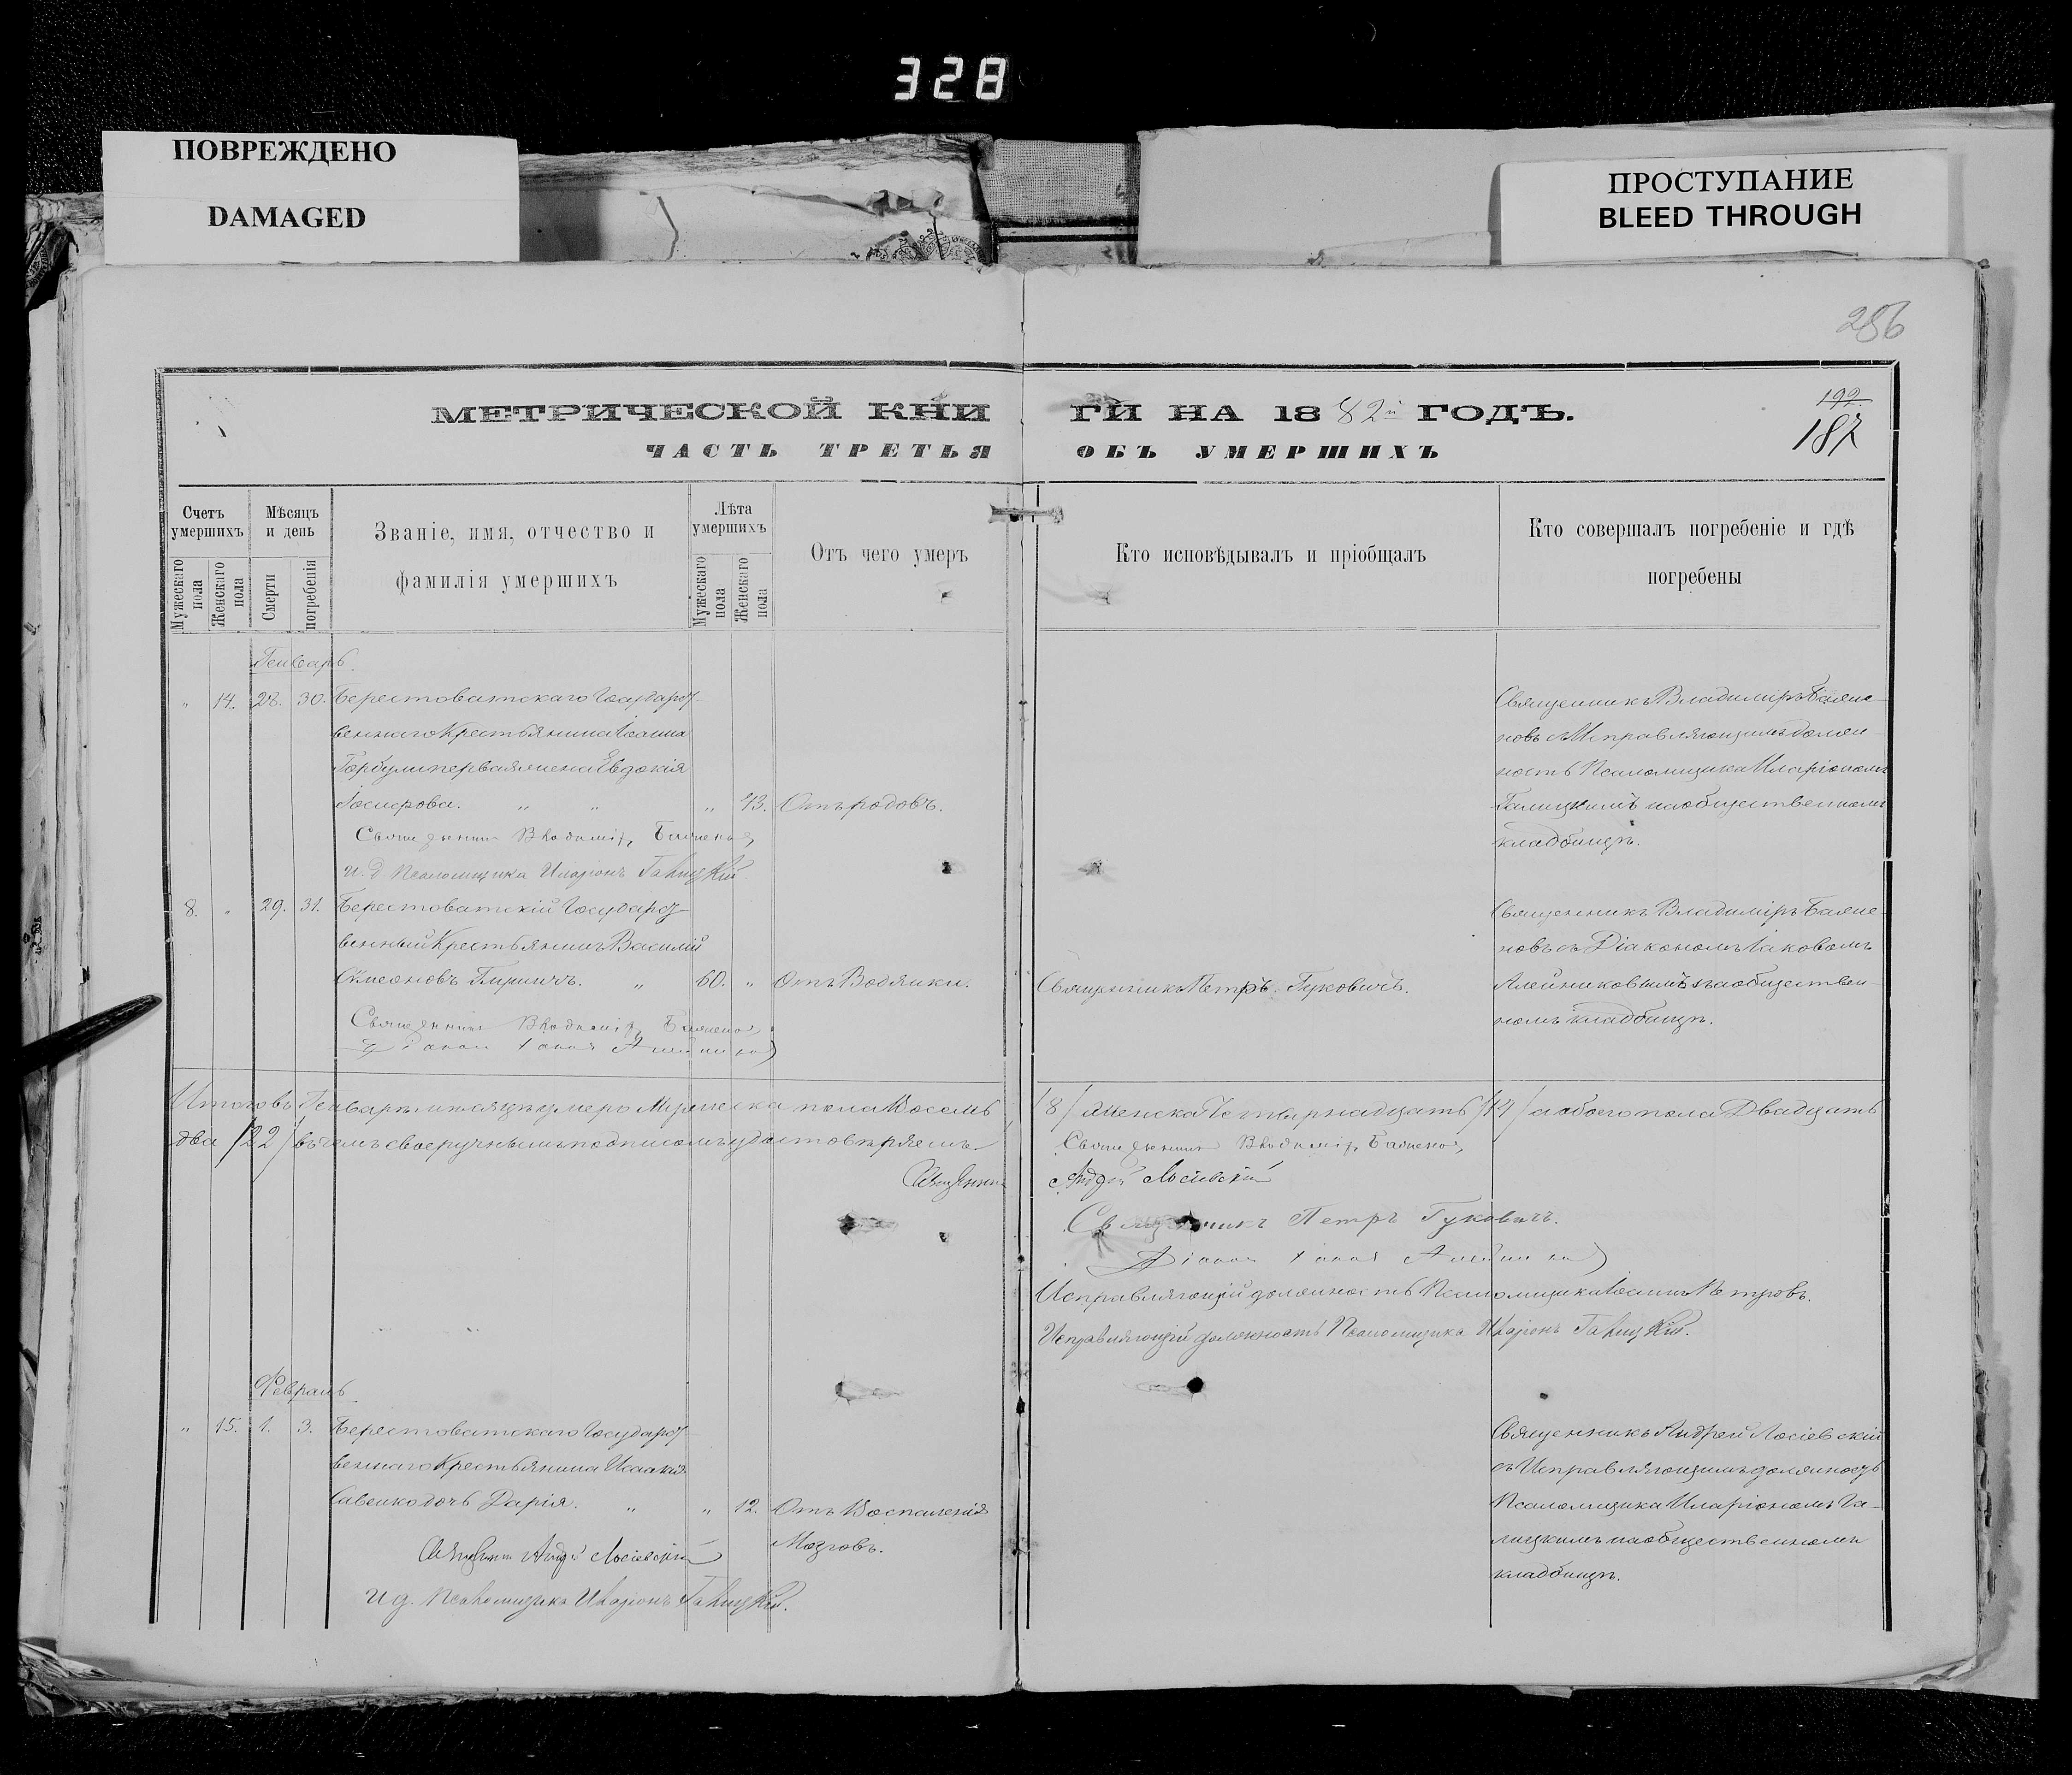 328
ПОВРЕЖДЕНО
DAMAGED
ПРОСТУПАНИЕ
BLEED THROUGH
286
МЕТРИЧЕСКОЙ КНИ ГИ НА 1882й ГОДЪ.
192
187
ЧАСТЬ ТРЕТЬЯ ОБЪ УМЕРШИХЪ
Счетъ умершихъ
Мужескаго пола
Женскаго пола
Мѣсяцъ и день
Смерти
погребенія
Званіе, имя, отчество и
фамилія умершихъ
Лѣта умершихъ
Мужескаго пола
Женскаго пола
Отъ чего умеръ
Кто исповѣдывалъ и пріобщалъ
Кто совершалъ погребеніе и гдѣ
погребены
Генварь.
" 14. 28. 30. Берестоватскаго Государст-
веннаго Крестьянина Іоанна
первая жена Евдокія
Іосифова. " " " 43. Отъ родовъ.
Священникъ Владиміръ Баженовъ
и. д. Псаломщика Иларіонъ Галицкій.
Священникъ Владиміръ Баже-
новъ съ Исправляющимъ долж-
ность Псаломщика Иларіономъ
Галицкимъ на общественномъ
кладбищѣ.
8. " 29. 31. Берестоватскій Государст-
венный Крестьянинъ Василій
Симеоновъ " 60. " Отъ Водянки.
Священникъ Петръ Гуковичъ.
Священникъ Владиміръ Баженовъ
Діаконъ Іаковъ Алейниковъ
Священникъ Владиміръ Баже-
новъ съ Діакономъ Іаковомъ
Алейниковымъ на обществен-
номъ кладбищѣ.
Итого въ Генварѣ мѣсяцѣ умерло Мужеска пола Восемь /8/ Женска Четырнадцать /14/ а обоего пола Двадцать
два /22/ въ чемъ своеручнымъ подписомъ удостовѣряемъ
Священникъ Владиміръ Баженовъ
Священникъ Андрей Лосіевскій
Священникъ Петръ Гуковичъ.
Діаконъ Іаковъ Алейниковъ
Исправляющій должность Псаломщика Іоаннъ Петровъ.
Исправляющій должность Псаломщика Иларіонъ Галицкій.
Февраль
" 15. 1. 3. Берестоватскаго Государст-
веннаго Крестьянина Исаакія
Савенко дочь Дарія. " " 12. Отъ Воспаленія
Мозговъ.
Священникъ Андрей Лосіевскій
И д. Псаломщика Иларіонъ Галицкій.
Священникъ Андрей Лосіевскій
съ Исправляющимъ должность
Псаломщика Иларіономъ Га-
лицкимъ на общественномъ
кладбищѣ.